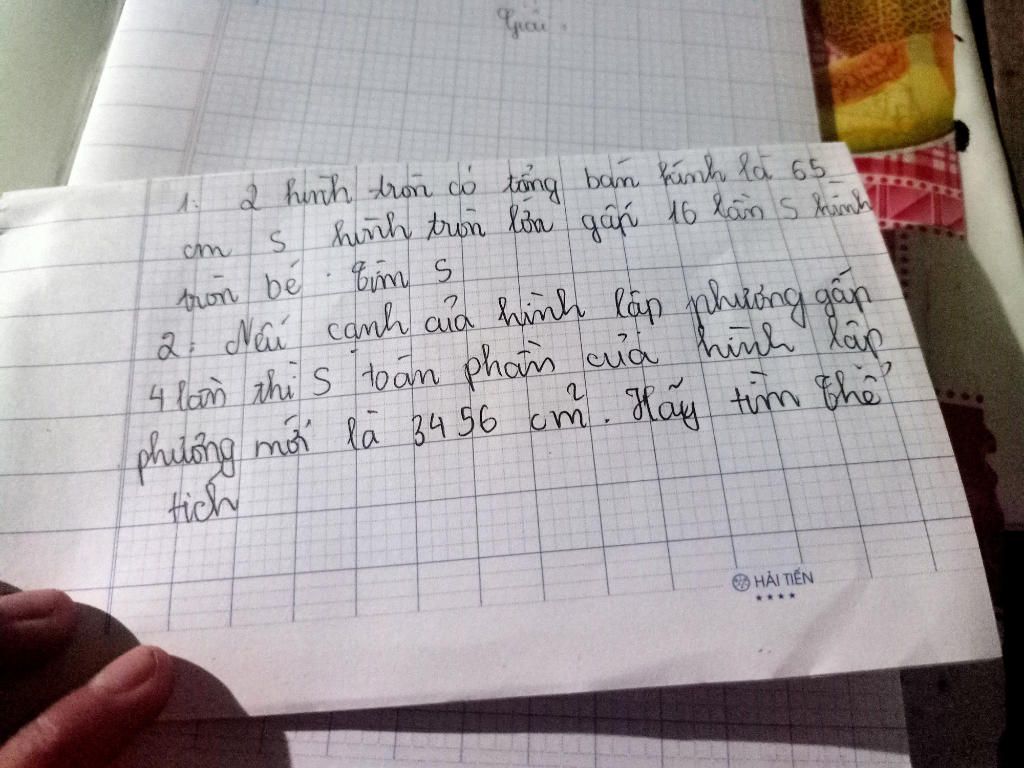 Giải.
1. 2 hình tròn có tổng bán kính là 65
cm S hình tròn lớn gấp 16 lần S hình
tròn bé. Tìm S
2. Nếu cạnh của hình lập phương gấp
4 lần thì S toàn phần của hình lập
phương mới là 3456 cm². Hãy tìm thể
tích
HẢI TIẾN